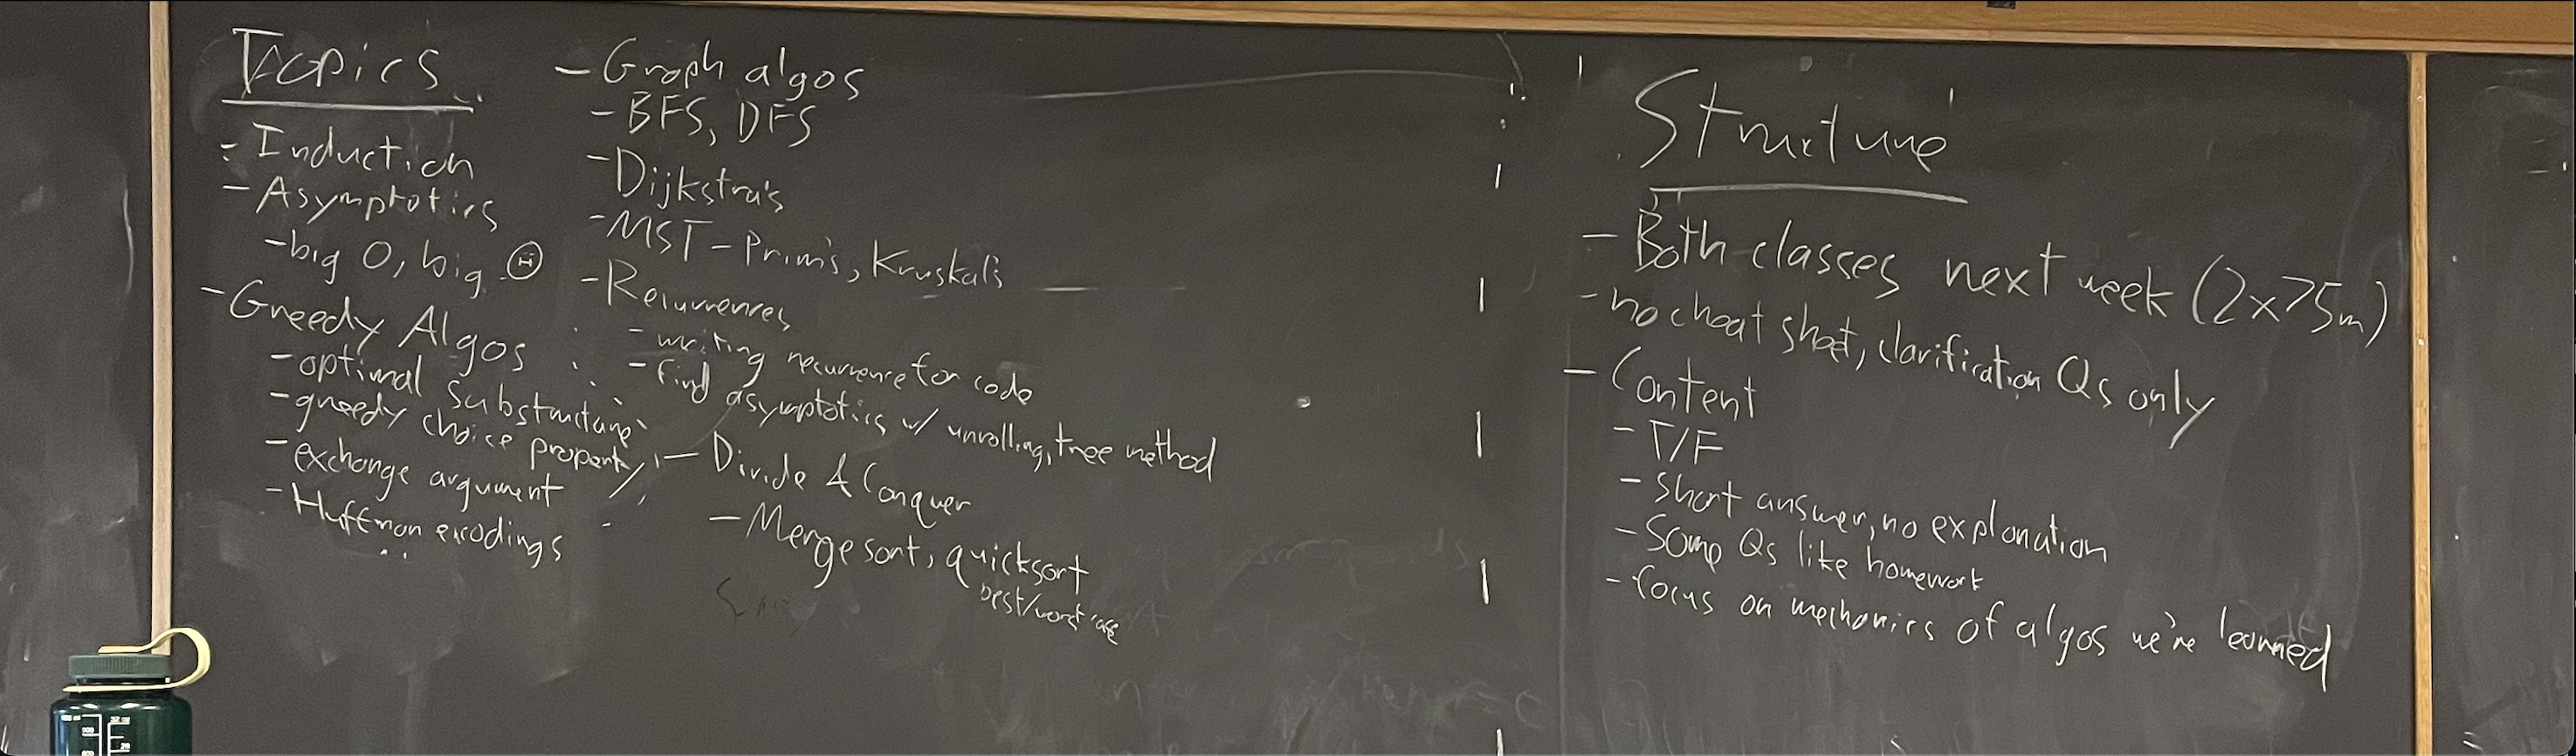 Topics
- Induction
- Asymptotics
- big O, big Θ
- Greedy Algos
- optimal substructure
- greedy choice property
- exchange argument
- Huffman encodings
- Graph algos
- BFS, DFS
- Dijkstra's
- MST - Prim's, Kruskal's
- Recurrences
- writing recurrence for code
- find asymptotics w/ unrolling, tree method
- Divide & Conquer
- Merge sort, quicksort
best/worst case
Structure
- Both classes next week (2x75m)
- no cheat sheet, clarification Qs only
- Content
- T/F
- short answer, no explanation
- Some Qs like homework
- focus on mechanics of algos we've learned